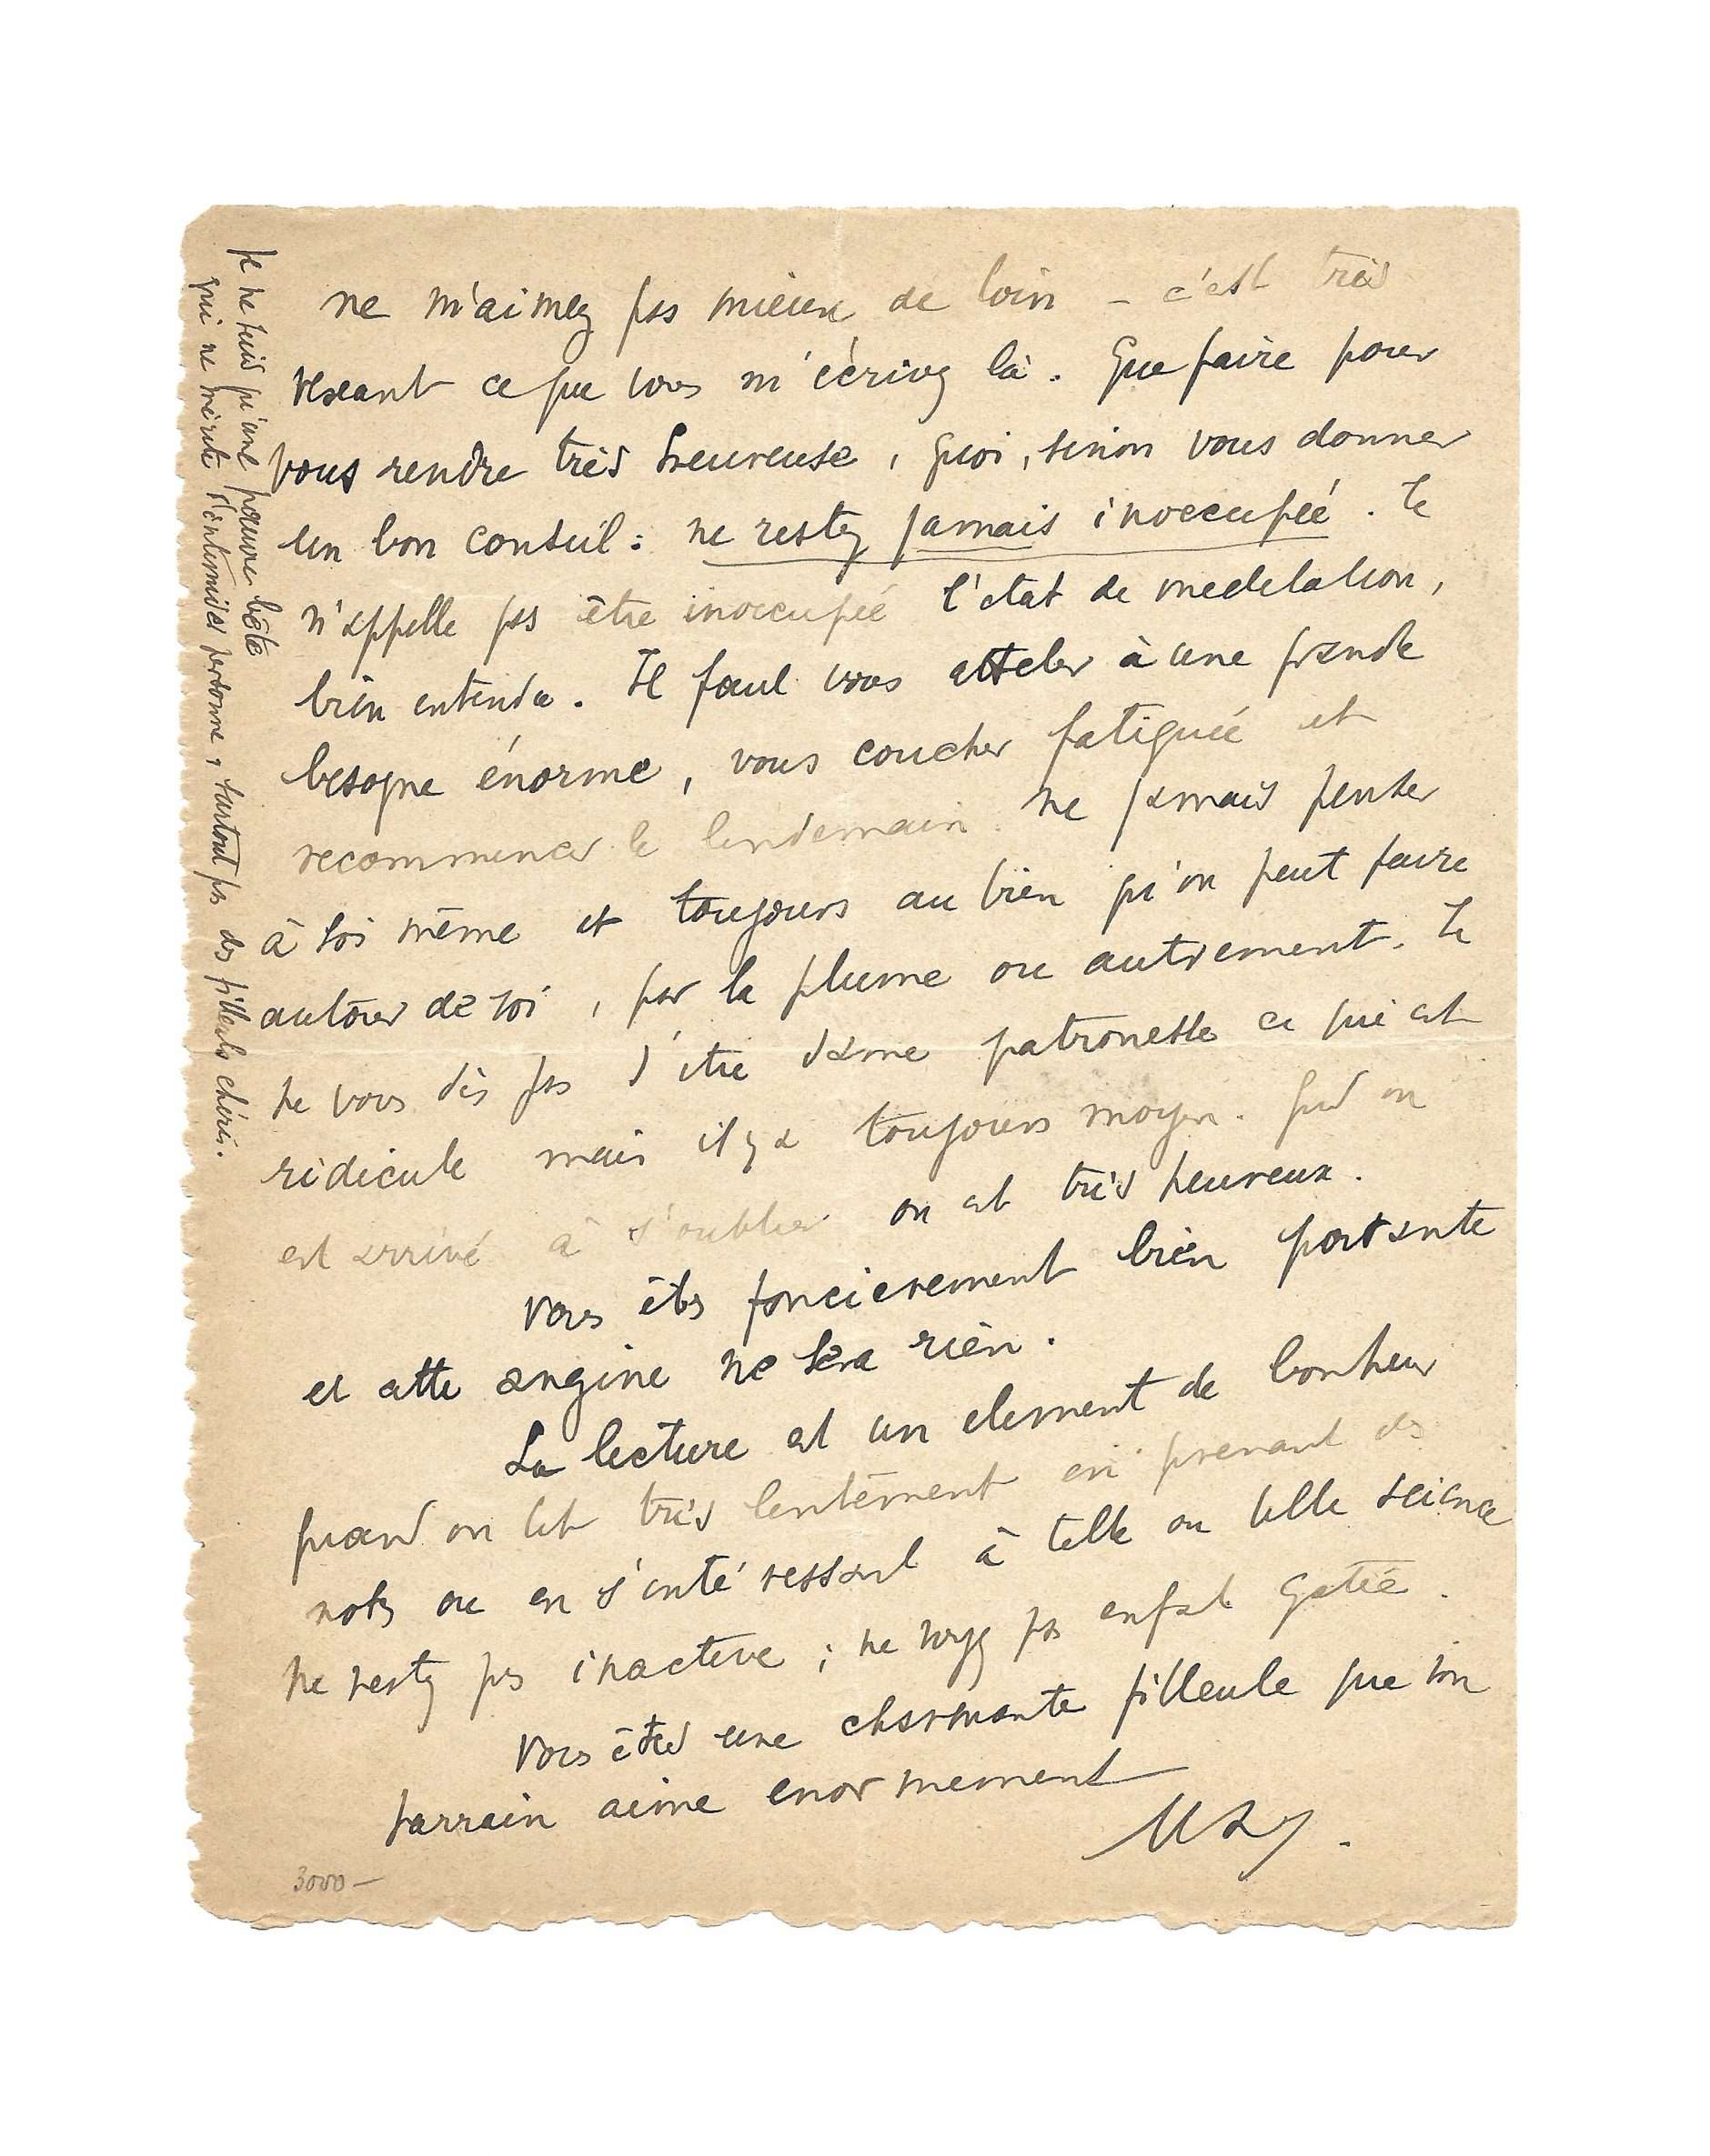 ne m'aimez pas mieux de loin – c'est très
vexant ce que vous m'écrivez là. Que faire pour
vous rendre très heureuse, quoi, sinon vous donner
un bon conseil : ne restez jamais inoccupée. Je
n'appelle pas être inoccupée l'état de meditation,
bien entendu. Il faut vous atteler à une grande
besogne énorme, vous coucher fatiguée et
recommencer le lendemain. ne jamais penser
à soi même et toujours au bien qu'on peut faire
autour de soi, par la plume ou autrement. Je
ne vous dis pas d'être dame patronesse ce qui est
ridicule mais il y a toujours moyen. Qud on
est arrivé à s'oublier on est très heureux.
Vous êtes foncierement bien portante
et cette angine ne sera rien.
La lecture est un element de bonheur
quand on lit très lentement en prenant des
notes ou en s'intéressant à telle ou telle science
Ne restez pas inactive ; ne soyez pas enfant gatée.
Vous êtes une charmante filleule que son
parrain aime enormement
MAX.
3000 –
Je ne suis qu'une pauvre bête
qui ne mérite d'intimider personne, surtout pas des filleuls chéris.